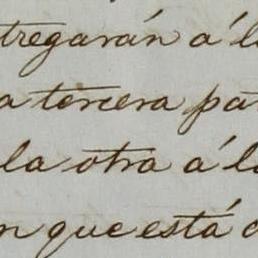 tregarán á l
a tercera pa
la otra á l
n que está